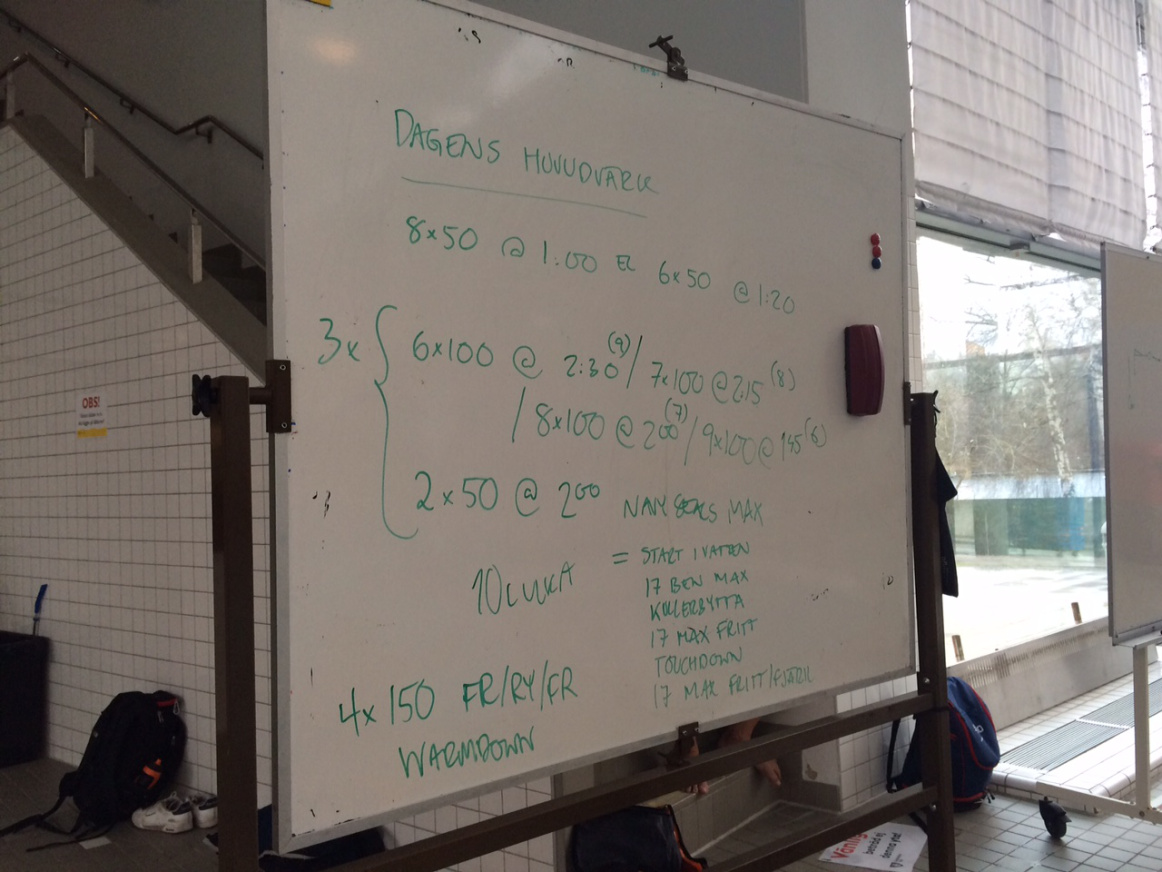 DAGENS HUVUDVÄRK
8x50 @ 1:00 EL 6x50 @ 1:20
3x { 6x100 @ 2:30 (9) / 7x100 @ 2:15 (8)
/ 8x100 @ 200 (7) / 9x100 @ 145 (6)
2x50 @ 200 MAX
= START I VATTEN
17 BEN MAX
KULLERBYTTA
17 MAX FRITT
TOUCHDOWN
17 MAX FRITT/FJÄRIL
4x150 FR/RY/FR
WARMDOWN
OBS!
Vänlig